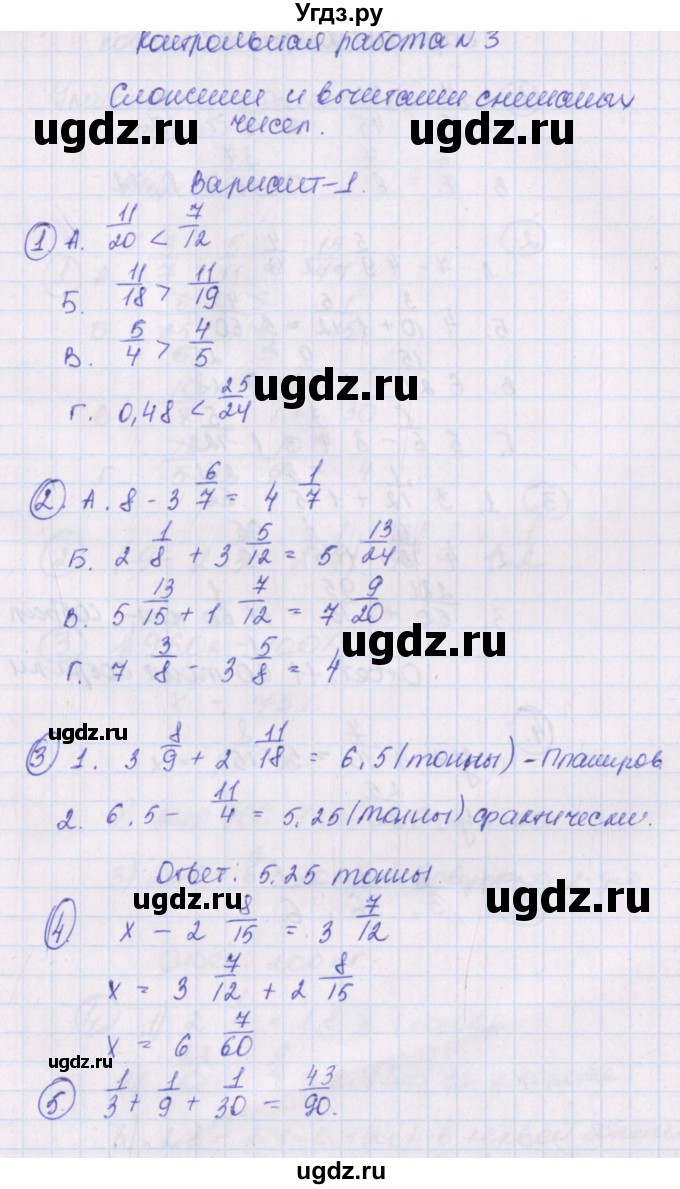 Угдз.ру
Контрольная работа N 3
Сложении и вычитании смешаных
чисел.
ugdz.ru ugdz.ru
Вариант-1.
① А. 11/20 < 7/12
Б. 11/18 > 11/19
В. 5/4 > 4/5
ugdz.ru
Г. 0,48 < 25/24
② А. 8 - 3 6/7 = 4 1/7
Б. 2 1/8 + 3 5/12 = 5 13/24
В. 5 13/15 + 1 7/12 = 7 9/20
ugdz.ru
Г. 7 3/8 - 3 5/8 = 4
ugdz.ru
③ 1. 3 8/9 + 2 11/18 = 6,5 (тонны) - Планиров
2. 6,5 - 11/4 = 5,25 (тонны) фактически.
Ответ: 5,25 тонны.
ugdz.ru ugdz.ru
④. x - 2 8/15 = 3 7/12
x = 3 7/12 + 2 8/15
ugdz.ru
x = 6 7/60
ugdz.ru
⑤. 1/3 + 1/9 + 1/30 = 43/90.
ugdz.ru